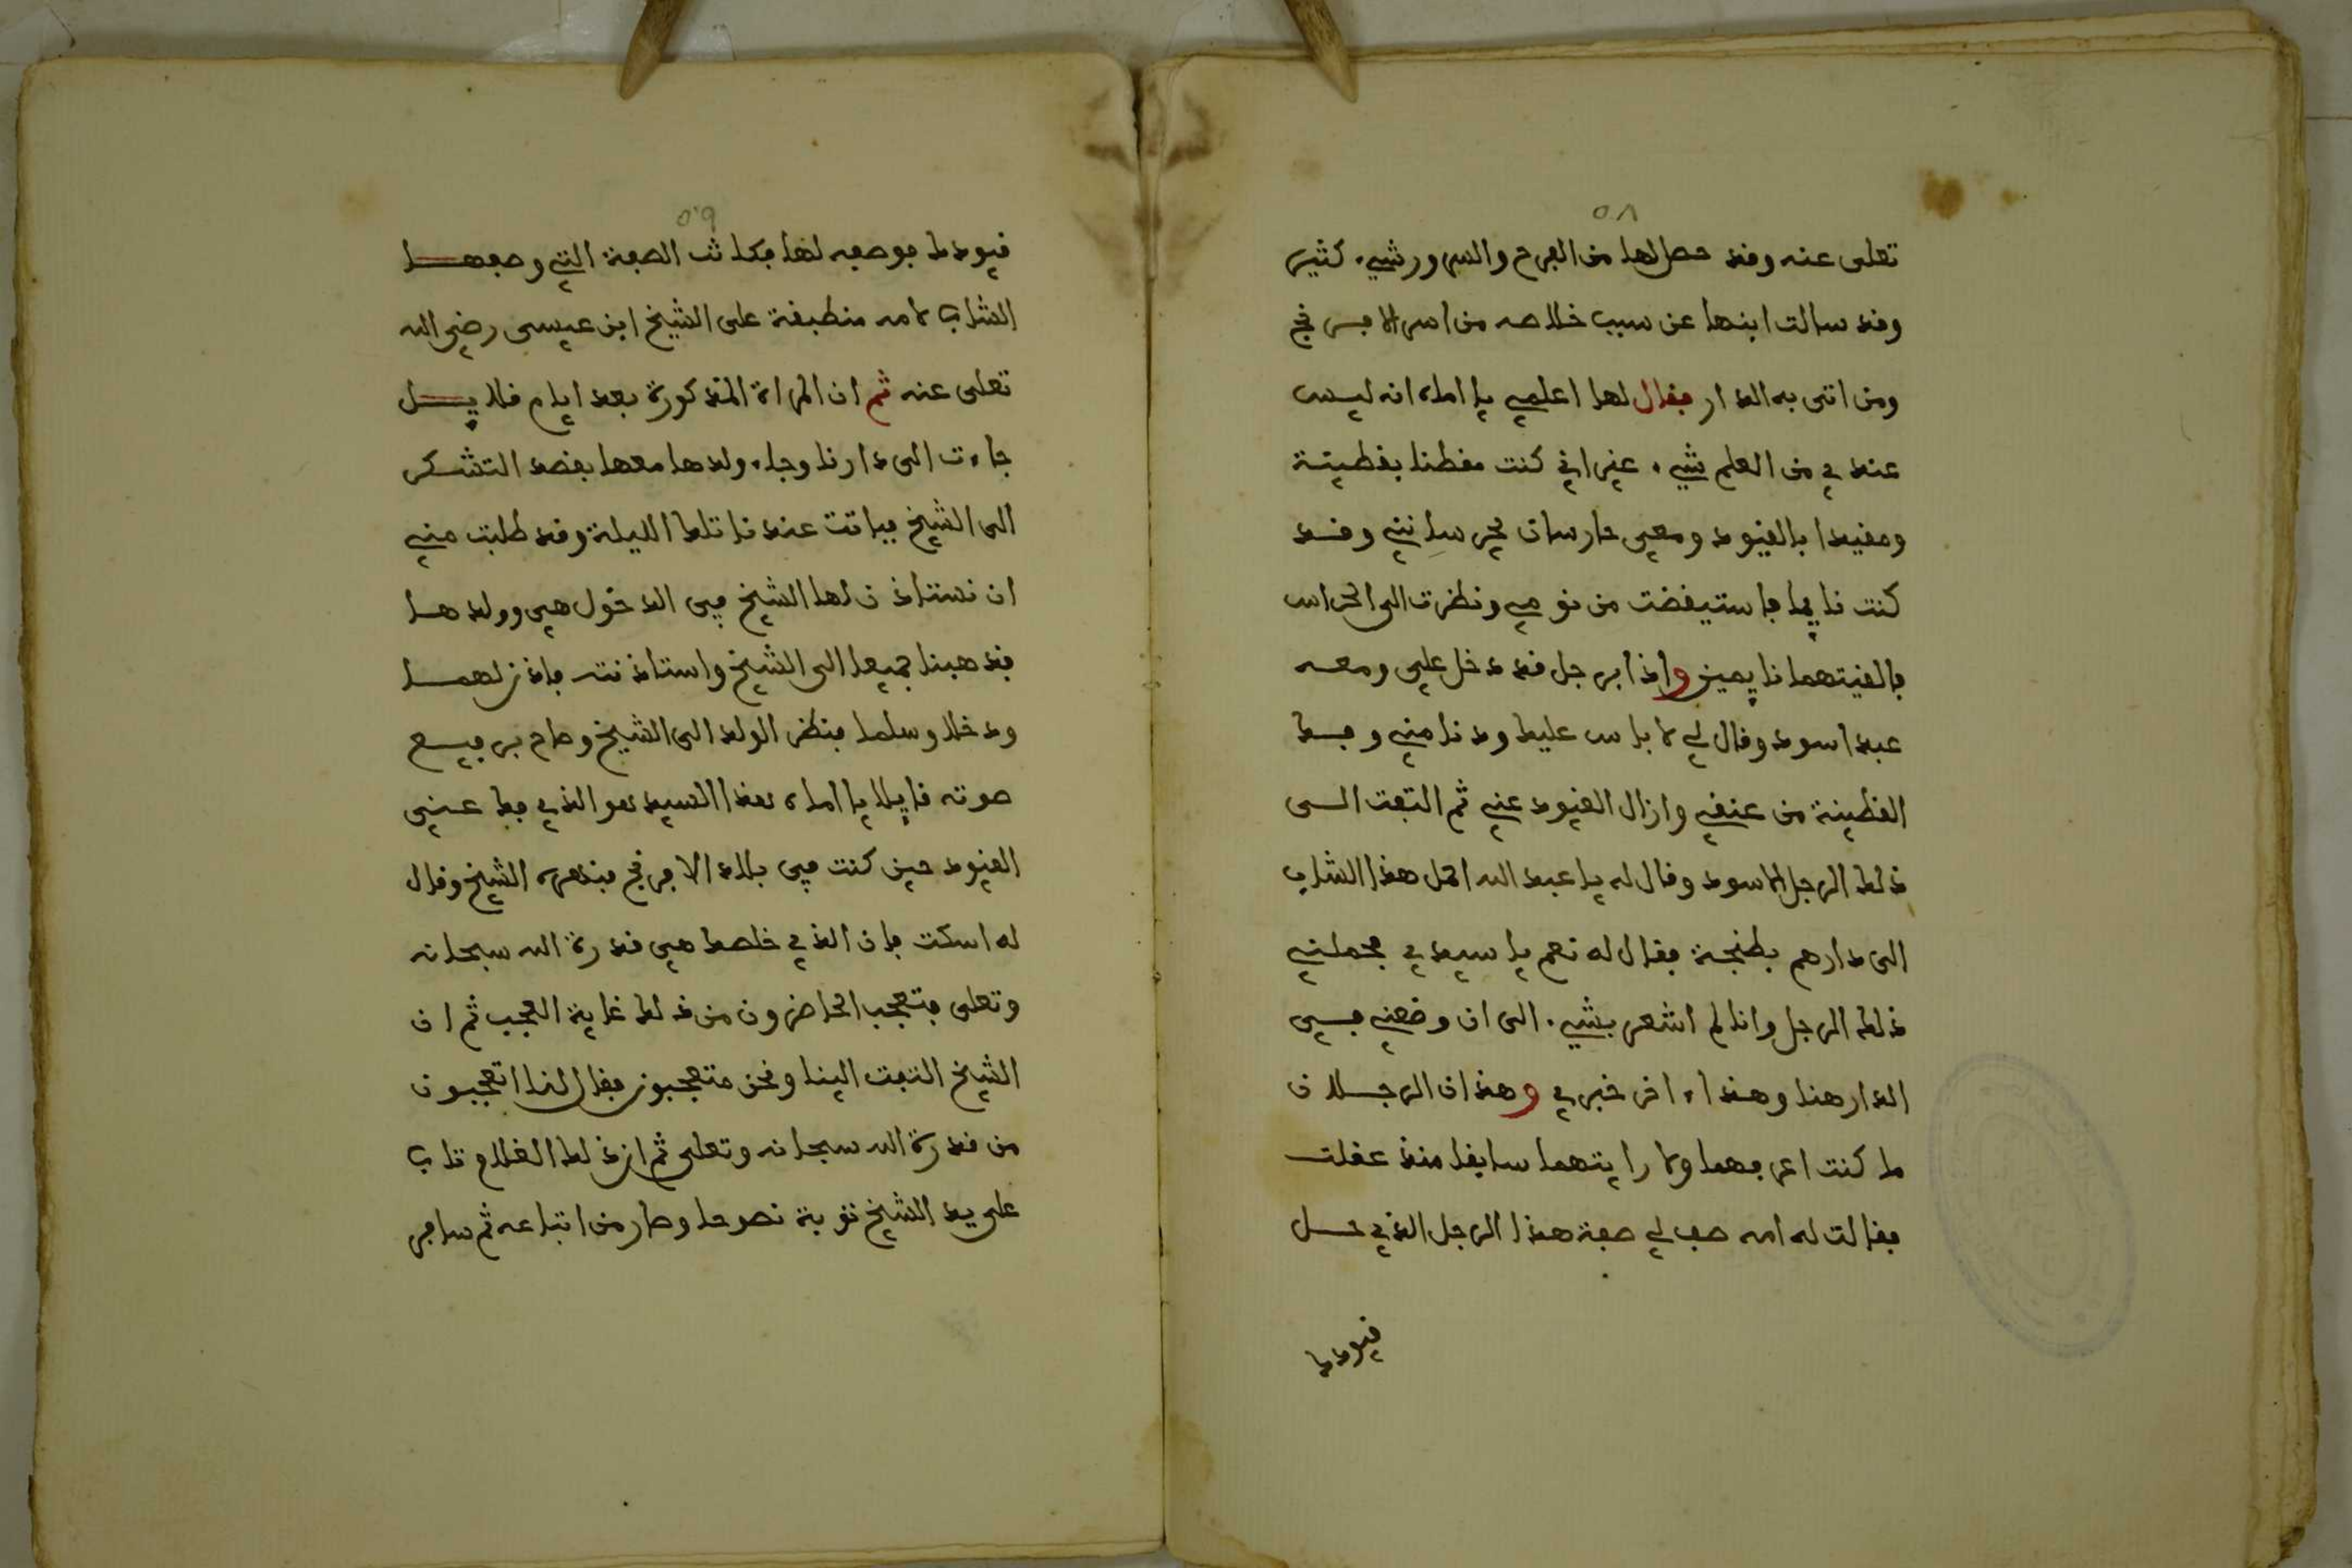 ٥٨
تعلى عنه وقد حصل لها من الفرح والسرور شيء كثير
وقد سالت ابنها عن سبب خلاصه من اسر الافرنج
ومن اتى به الدار فقال لها اعلمي يا اماه انه ليس
عندي من العلم شيء غير اني كنت مقطنا بقطينة
ومقيدا بالقيود ومعي حارسان يحرسانني وقد
كنت نايما فاستيقضت من نومي ونظرت الى الحراس
فالفيتهما نايمين واذا برجل قد دخل علي ومعه
عبد اسود وقال لي لا باس عليك ودنا مني وفك
القطينة من عنقي وازال القيود عني ثم التفت الى
ذلك الرجل الاسود وقال له يا عبد الله احمل هذا الشاب
الى دارهم بطنجة فقال له نعم يا سيدي فحملني
ذلك الرجل وانا لم اشعر بشيء الى ان وضعني في
الدار هنا وهذا ءاخر خبري وهذان الرجلان
ما كنت اعرفهما ولا رايتهما سابقا منذ عقلت
فقالت له امه صف لي صفة هذا الرجل الذي حل
قيودك
٥٩
قيودك فوصفه لها فكانت الصفة التي وصفها
الشاب لامه منطبقة على الشيخ ابن عيسى رضي الله
تعلى عنه ثم ان المراة المذكورة بعد ايام قلايل
جاءت الى دارنا وجاء ولدها معها بقصد التشكر
الى الشيخ فباتت عندنا تلك الليلة وقد طلبت مني
ان نستاذن لها الشيخ في الدخول هي وولدها
فذهبنا جميعا الى الشيخ واستاذنته فاذن لهما
ودخلا وسلما فنظر الولد الى الشيخ وصاح برفيع
صوته قايلا يا اماه هذا السيد هو الذي فك عني
القيود حين كنت في بلاد الافرنج فنهره الشيخ وقال
له اسكت فان الذي خلصك هي قدرة الله سبحانه
وتعلى فتعجب الحاضرون من ذلك غاية العجب ثم ان
الشيخ التفت الينا ونحن متعجبون فقال لنا اتعجبون
من قدرة الله سبحانه وتعلى ثم ان ذلك الغلام تاب
على يد الشيخ توبة نصوحا وصار من اتباعه ثم سافر